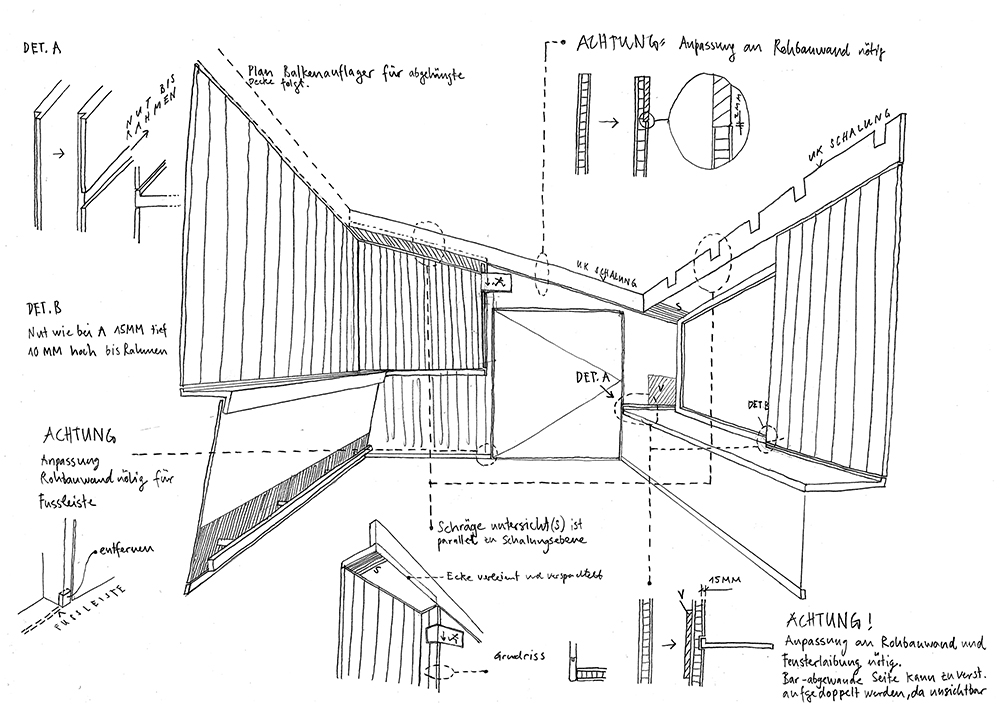 DET. A
NUT BIS
RAHMEN
Plan Balkenauflager für abgehängte
Decke folgt.
ACHTUNG: Anpassung an Rohbauwand nötig
2MM
UK SCHALUNG
UK SCHALUNG
S
DET.B
Nut wie bei A 15MM tief
10 MM hoch bis Rahmen
DET. A
V
DET B
ACHTUNG
Anpassung
Rohbauwand nötig für
Fussleiste
entfernen
FUSSLEISTE
Schräge untersicht(s) ist
parallel zu Schalungsebene
S
Ecke verleimt und verspachtelt
Grundriss
V
15MM
ACHTUNG!
Anpassung an Rohbauwand und
Fensterlaibung nötig.
Bar-abgewande Seite kann zu verst.
aufgedoppelt werden, da unsichtbar